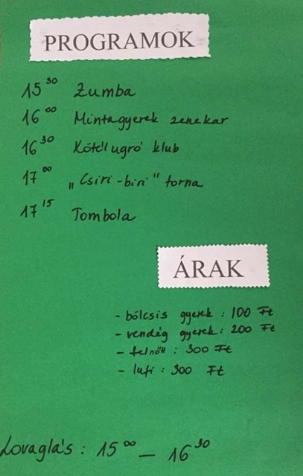 PROGRAMOK
15³⁰ Zumba
16⁰⁰ Mintagyerek zenekar
16³⁰ Kötélugró klub
17⁰⁰ „Csiri-biri" torna
17¹⁵ Tombola
ÁRAK
- bölcsis gyerek : 100 Ft
- vendég gyerek : 200 Ft
- felnőtt : 300 Ft
- lufi : 300 Ft
Lovaglás : 15⁰⁰ — 16³⁰